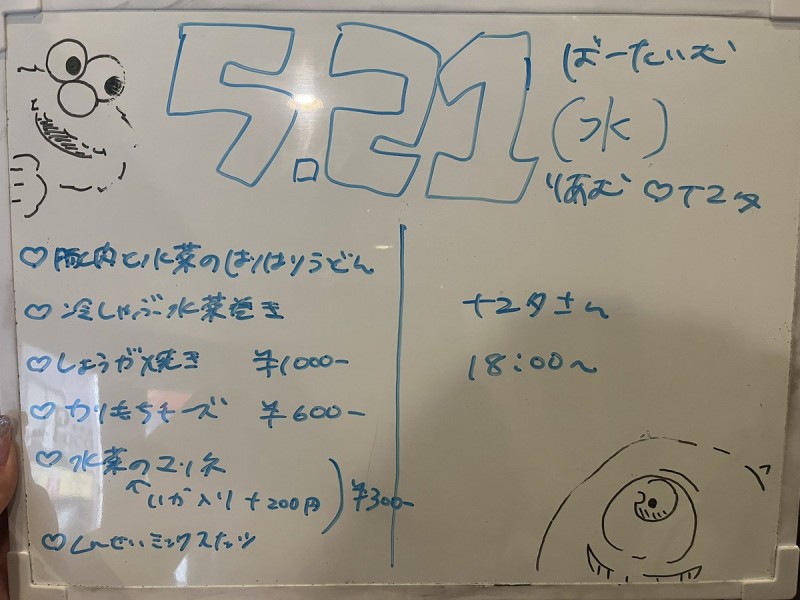 5.21
ばーたいむ
(水)
りあむ ♡ T2タ
♡豚肉と水菜のはりはりうどん
♡冷しゃぶ水菜巻き
♡しょうが焼き ¥1000-
♡カリもちチーズ ¥600-
♡水菜のコリネ
↖いか入り +200円 ) ¥300-
ミックスナッツ
+2タさん
18:00〜